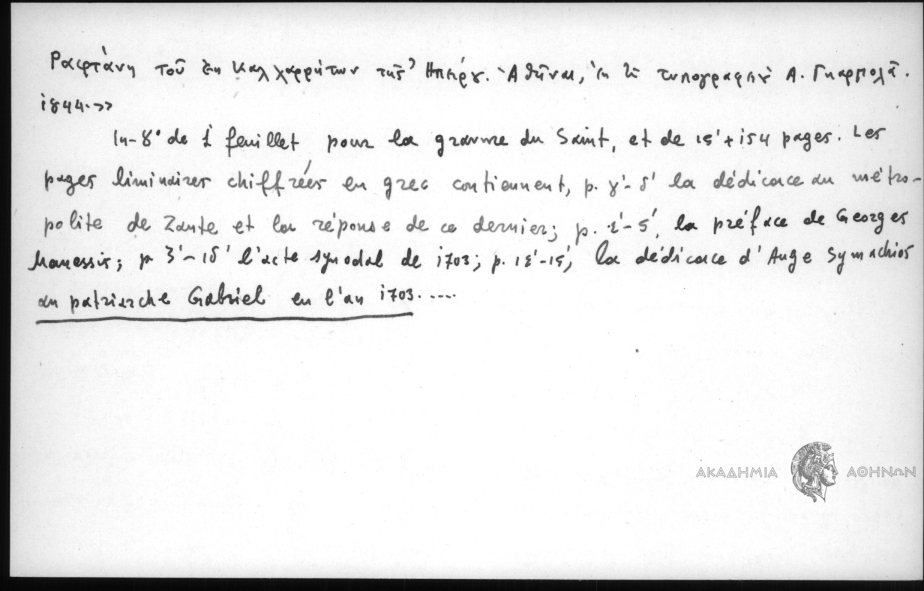 Ραφτάνη τοῦ ἐκ Καλχαρρύτων τῆς Ἠπείρ. Ἀθῆναι, ἐκ τ. τυπογραφείου Α. Γκαρπολᾶ.
1844.>>
In-8° de 1 feuillet pour la gravure du Saint, et de 15'+154 pages. Les
pages liminaires chiffrées en grec contiennent, p. γ'-δ' la dédicace au métro-
polite de Zante et la réponse de ce dernier; p. ε'-ς', la préface de Georges
Manessis; p. ζ'-ιδ' l'acte synodal de 1703; p. ιε'-ις', la dédicace d'Ange Symachios
au patriarche Gabriel en l'an 1703.....
ΑΚΑΔΗΜΙΑ ΑΘΗΝΩΝ